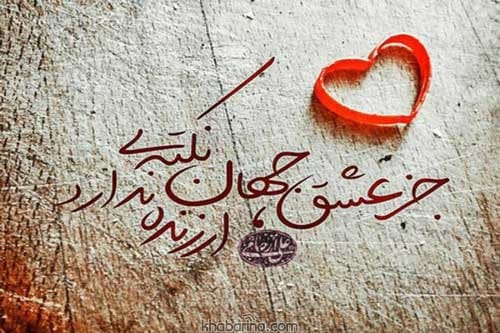 جز عشق، جهان نکته‌ی
ارزنده ندارد
knabarina.com